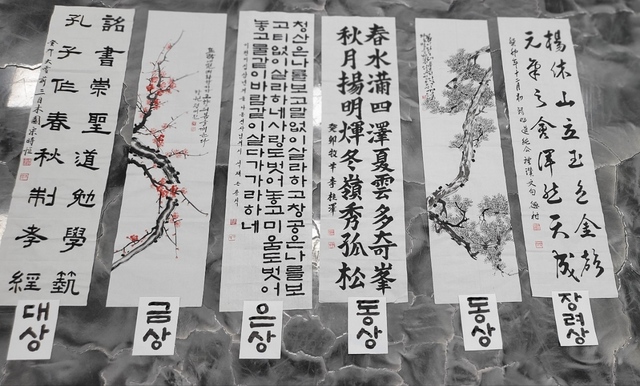 書崇聖道勉學藝
孔子作春秋制孝經
청산은나를보고말없이살라하고창공은나를보
고티없이살라하네사랑도벗어놓고미움도벗어
놓고물같이바람같이살다가가라하네
春水滿四澤夏雲多奇峯
秋月揚明煇冬嶺秀孤松
揚休山立玉色金聲
元氣之會渾然天成
대상
금상
은상
동상
동상
장려상